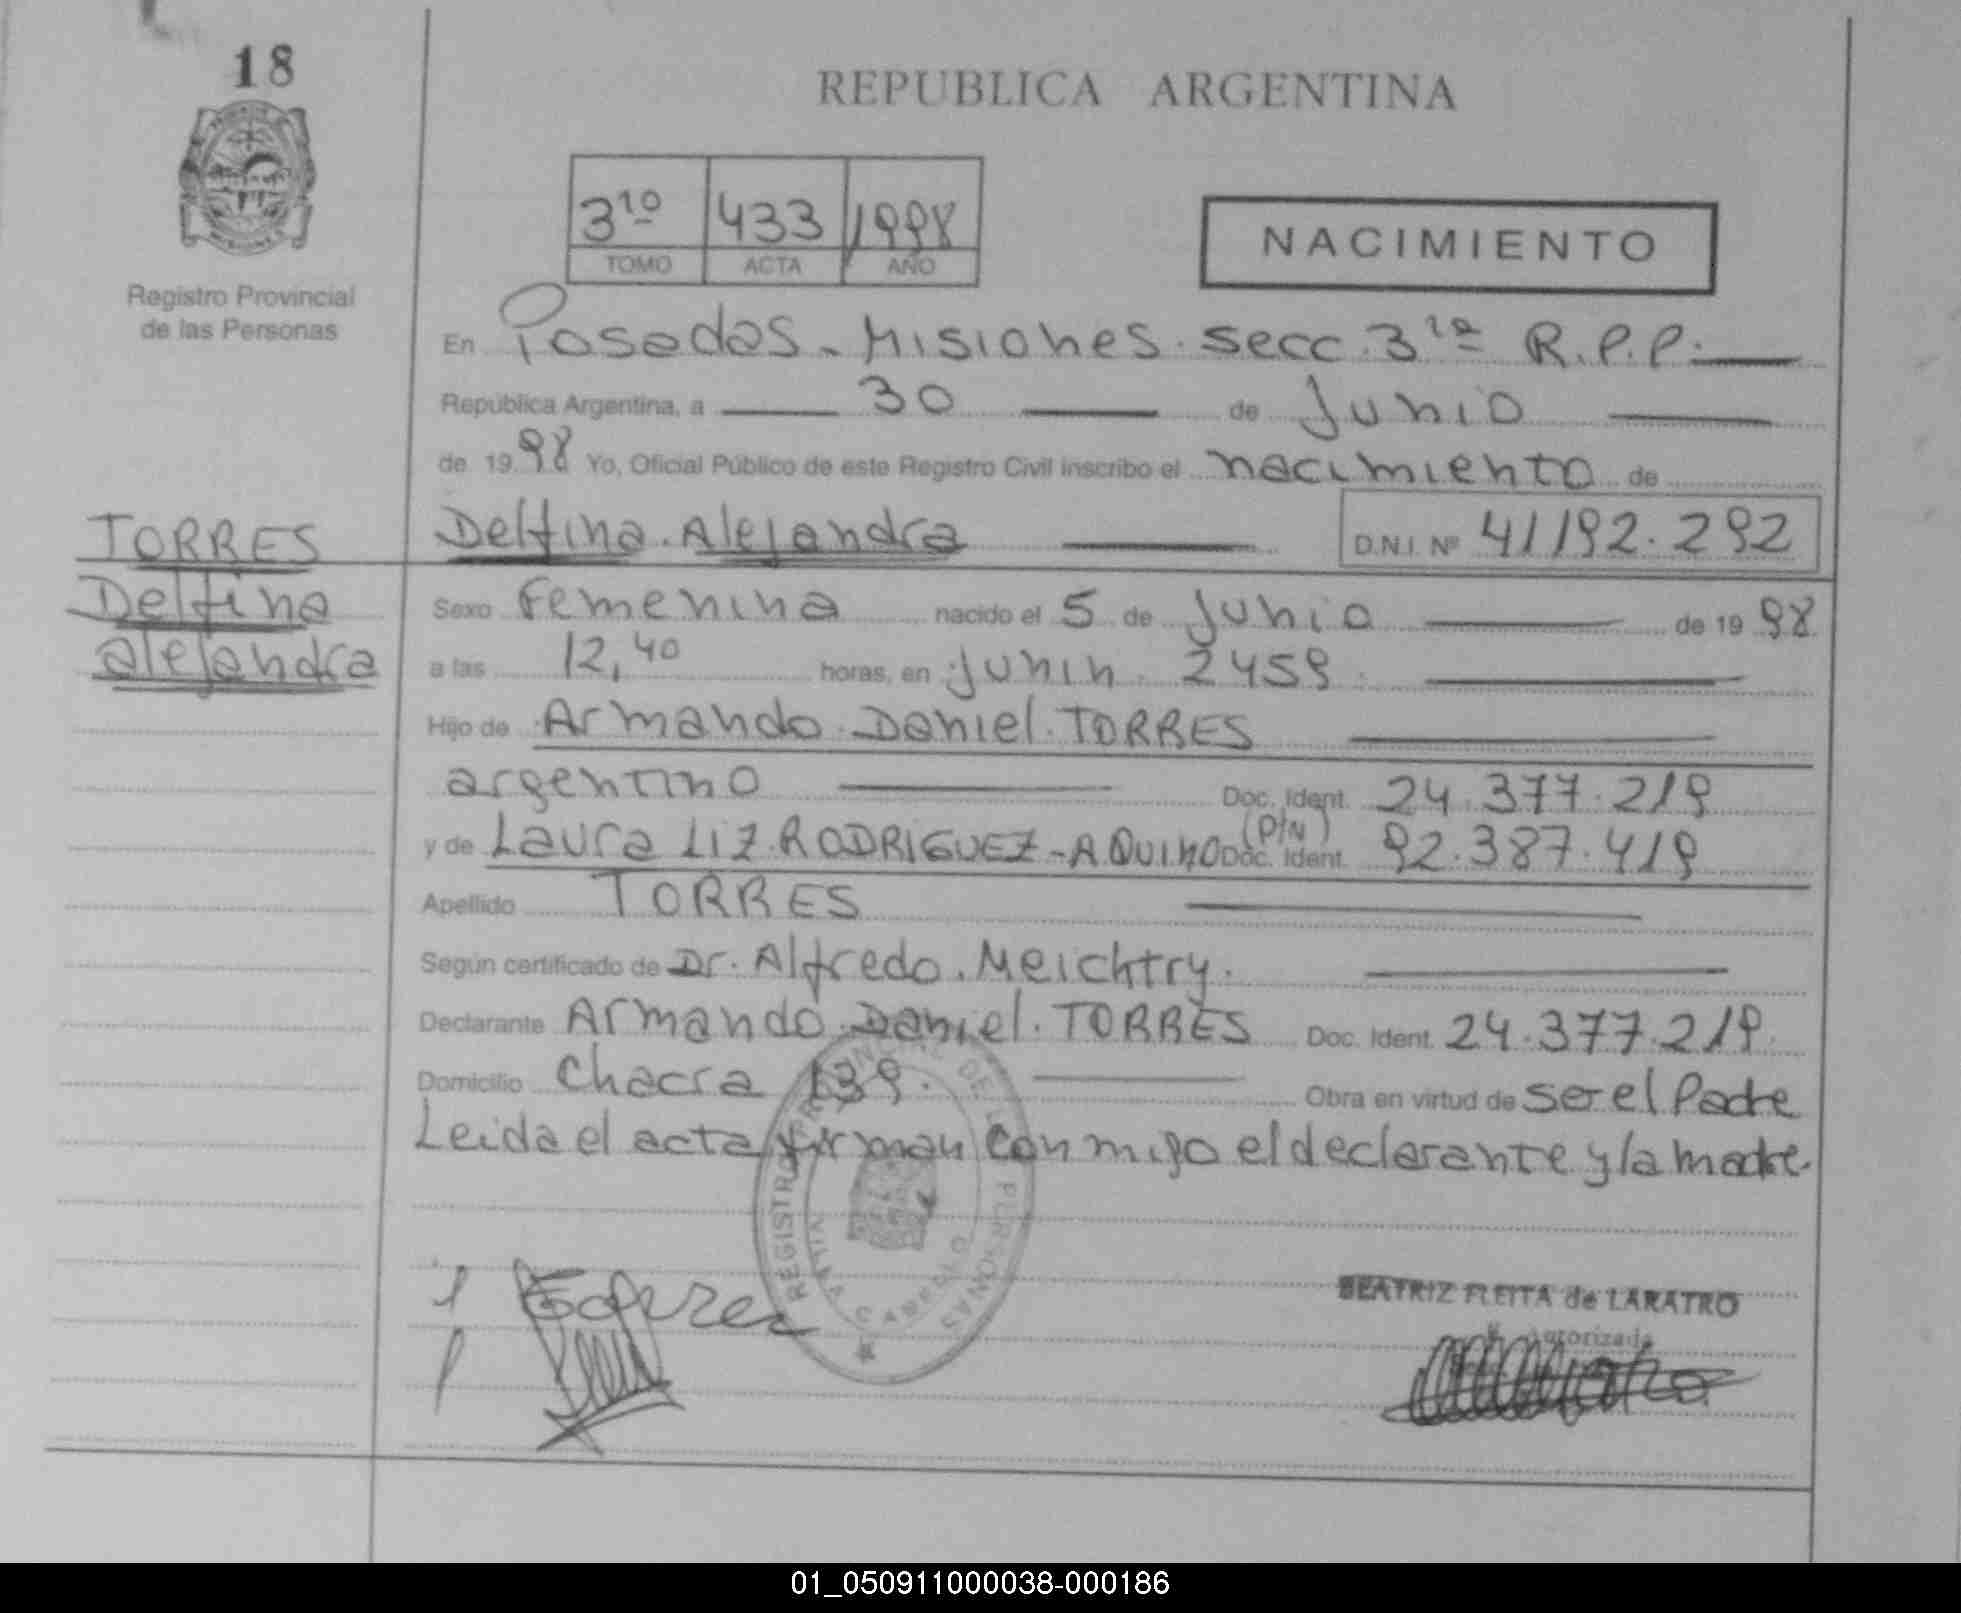 18
REPUBLICA ARGENTINA
3ro 433 1998
TOMO ACTA AÑO
NACIMIENTO
Registro Provincial
de las Personas
En Posadas - Misiones. secc. 3ra R.P.P.
República Argentina, a 30 de Junio
de 1998 Yo, Oficial Público de este Registro Civil inscribo el nacimiento de
TORRES
Delfina
alejandra
Delfina. Alejandra D.N.I. Nº 41192.292
Sexo Femenina nacido el 5 de Junio de 1998
a las 12,40 horas, en Junin. 2459.
Hijo de Armando. Daniel. TORRES
argentino Doc. Ident. 24.377.219
(P/N)
y de Laura LIZ. RODRIGUEZ - AQUINO Doc. Ident. 92.387.419
Apellido TORRES
Según certificado de Dr. Alfredo. Meichtry.
Declarante Armando. Daniel. TORRES Doc. Ident. 24.377.219.
Domicilio Chacra 139. Obra en virtud de ser el Padre
Leida el acta firman con migo el declarante y la madre.
REGISTRO PROVINCIAL DE LAS PERSONAS
BEATRIZ FLEITA de LARATRO
Autorizada
01_050911000038-000186